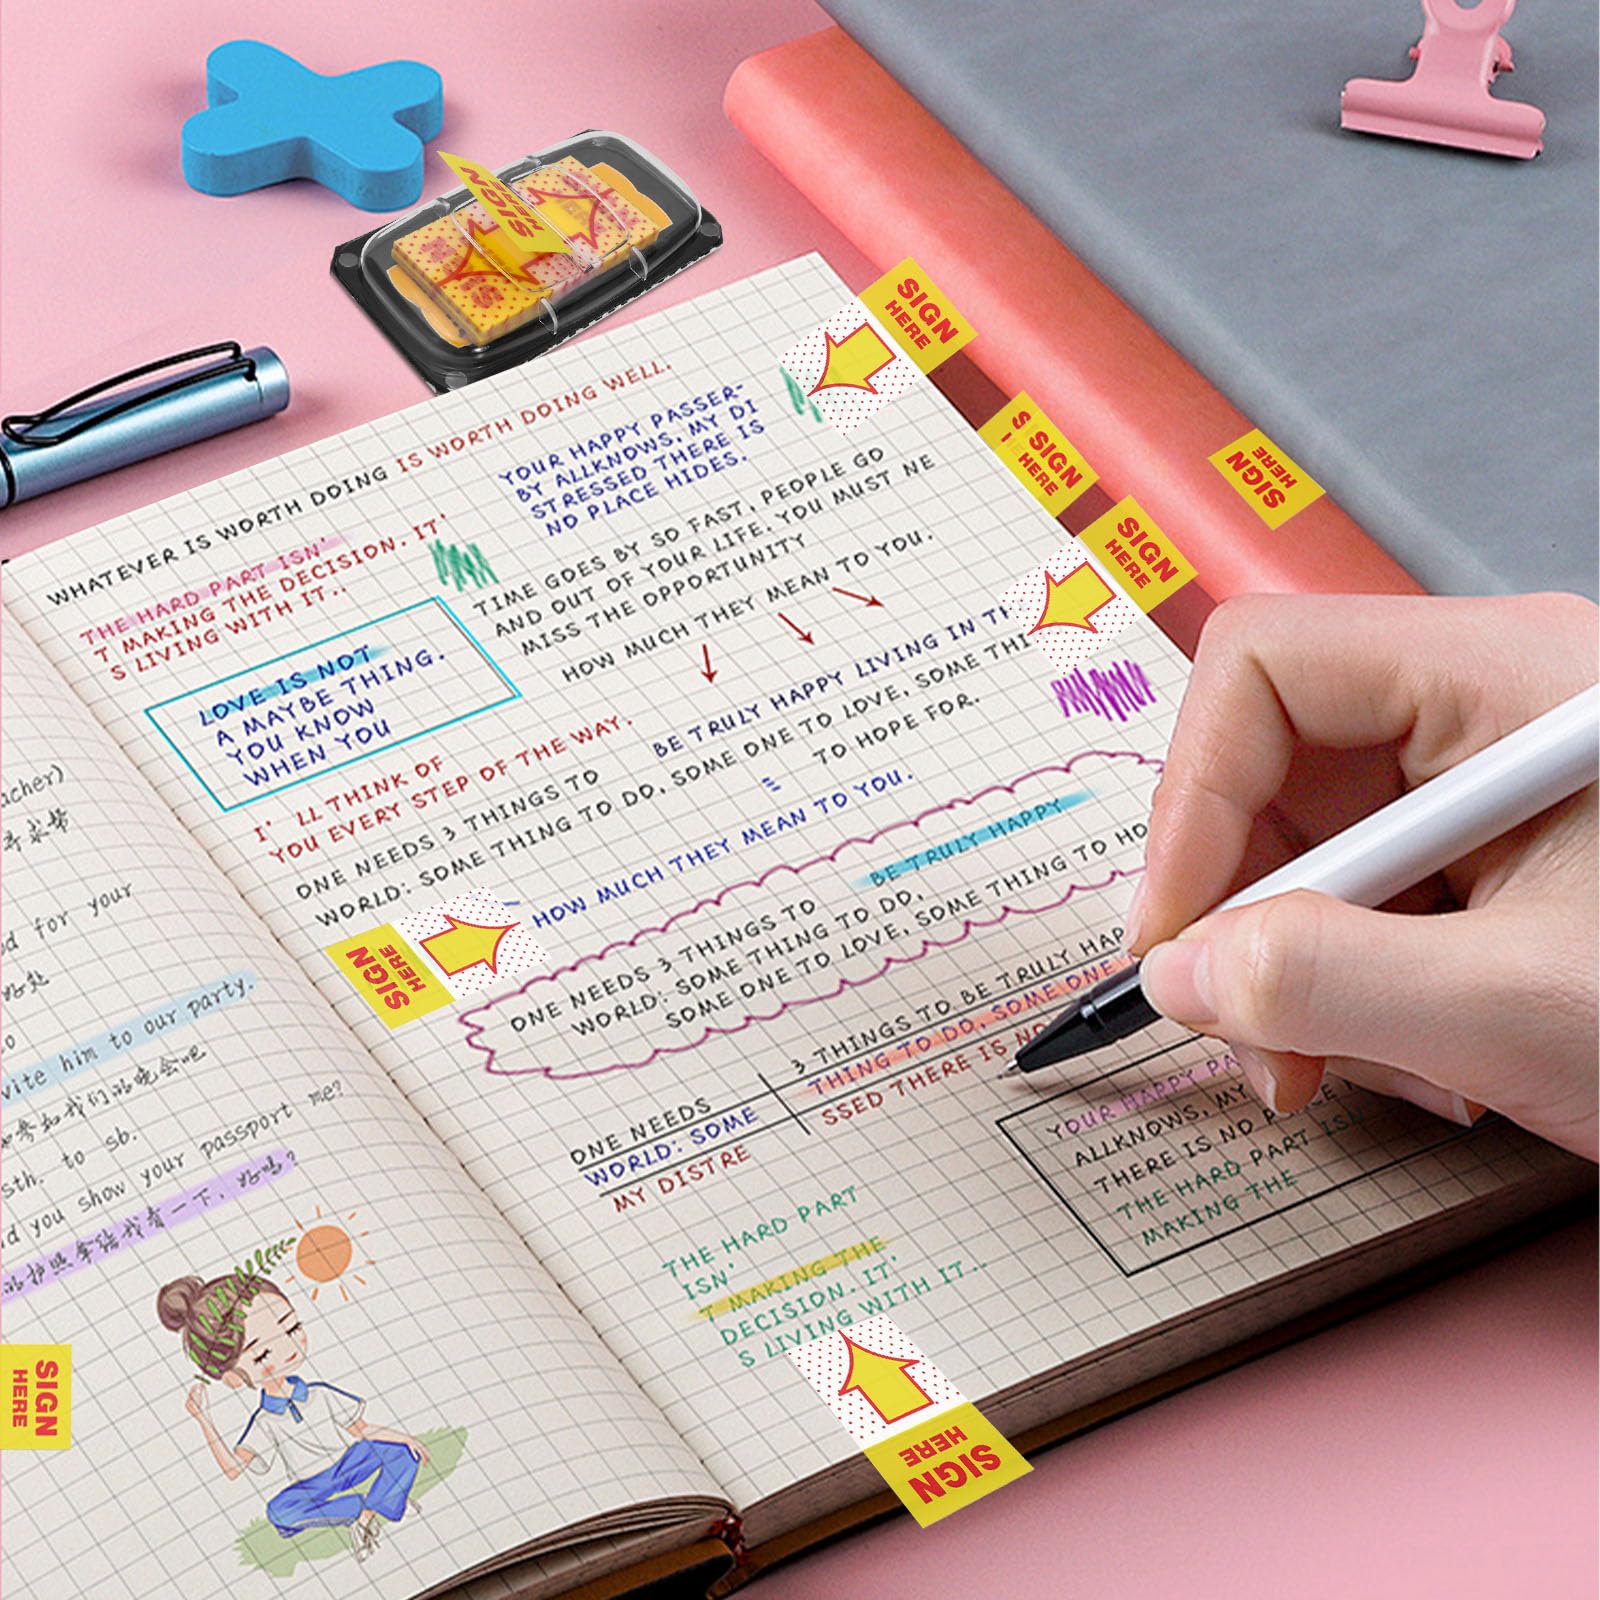 SIGN
HERE
SIGN
HERE
S SIGN
HERE
SIGN
HERE
SIGN
HERE
WHATEVER IS WORTH DOING IS WORTH DOING WELL.
THE HARD PART ISN'
T MAKING THE DECISION. IT'
S LIVING WITH IT..
YOUR HAPPY PASSER-
BY ALLKNOWS, MY DI
STRESSED THERE IS
NO PLACE HIDES.
TIME GOES BY SO FAST, PEOPLE GO
AND OUT OF YOUR LIFE. YOU MUST NE
MISS THE OPPORTUNITY
HOW MUCH THEY MEAN TO YOU.
LOVE IS NOT
A MAYBE THING.
YOU KNOW
WHEN YOU
I' LL THINK OF
YOU EVERY STEP OF THE WAY.
BE TRULY HAPPY LIVING IN TH
ONE NEEDS 3 THINGS TO
WORLD: SOME THING TO DO, SOME ONE TO LOVE, SOME THI
TO HOPE FOR.
HOW MUCH THEY MEAN TO YOU.
SIGN
HERE
BE TRULY HAPPY
ONE NEEDS 3 THINGS TO
WORLD: SOME THING TO DO,
SOME ONE TO LOVE, SOME THING TO HO
3 THINGS TO BE TRULY HAP
THING TO DO, SOME ONE
SSED THERE IS NO
ONE NEEDS
WORLD: SOME
MY DISTRE
YOUR HAPPY PA
ALLKNOWS, MY
THERE IS NO PLACE
THE HARD PART ISN
MAKING THE
THE HARD PART
ISN'
T MAKING THE
DECISION. IT'
S LIVING WITH IT..
SIGN
HERE
acher)
寻求帮
d for your
好处
vite him to our party.
参加我们的晚会吧
sth. to sb.
d you show your passport me?
的护照拿给我看一下，好吗？
SIGN
HERE